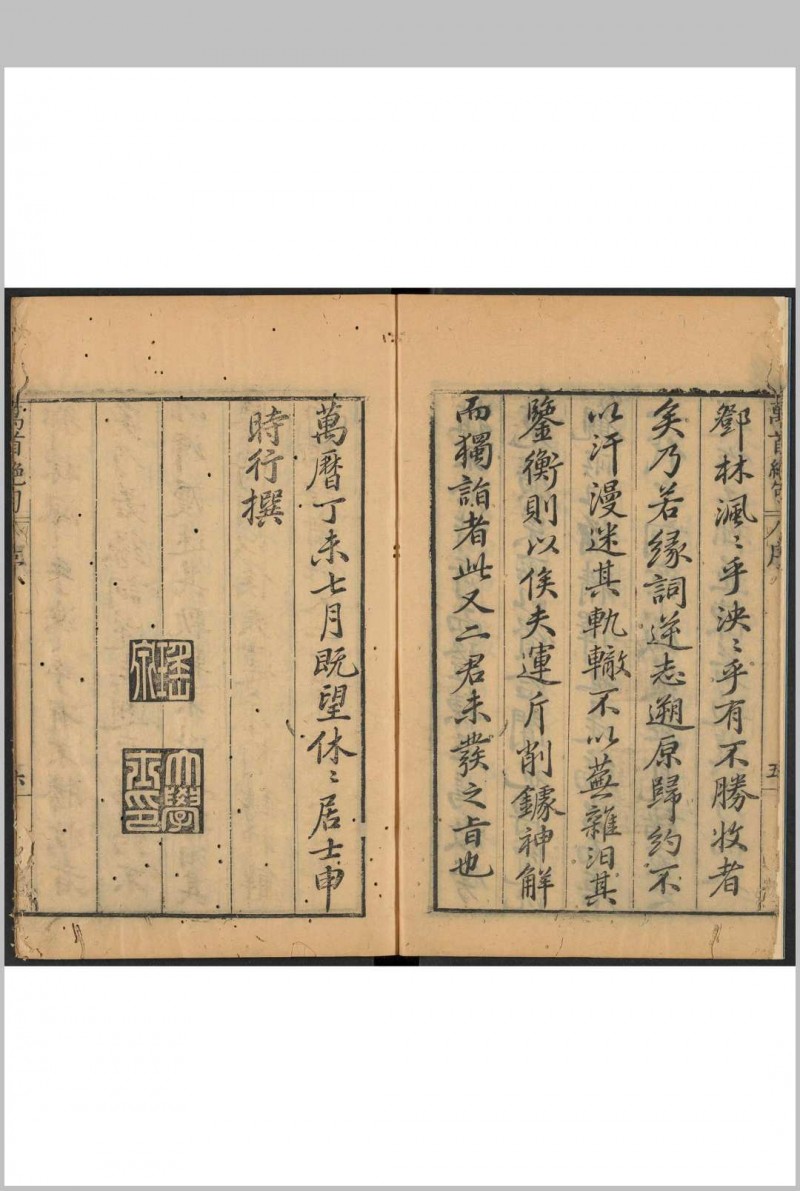 萬首絕句
序
五
鄧林渢〻乎泱〻乎有不勝收者
矣乃若緣詞逆志遡原歸約不
以汗漫迷其軌轍不以蕪雜汩其
鑒衡則以俟夫運斤削鐻神解
而獨詣者此又二君未發之旨也
萬曆丁未七月既望休〻居士申
時行撰
瑤泉
大學士印
萬首絕句
序
六